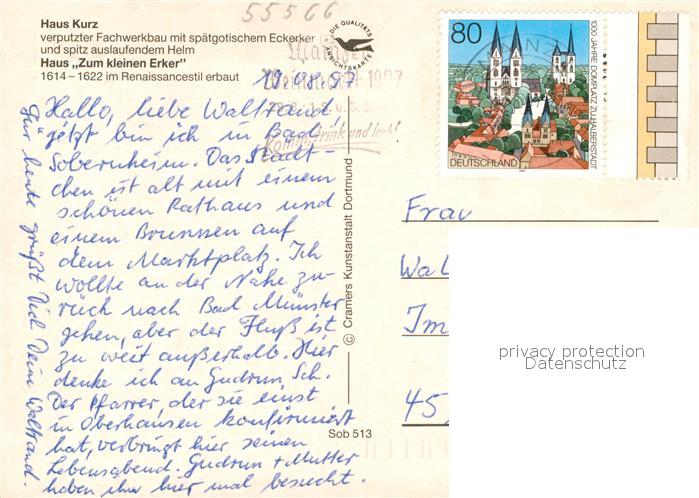 Haus Kurz
verputzter Fachwerkbau mit spätgotischem Eckerker
und spitz auslaufendem Helm
Haus „Zum kleinen Erker"
1614 – 1622 im Renaissancestil erbaut
55566
DIE QUALITÄTS
ANSICHTSKARTE
19.08.97
Hallo, liebe Waltraud
jetzt bin ich in Bad
Sobernheim. Das Städt-
chen ist alt mit einem
schönen Rathaus und
einem Brunnen auf
dem Marktplatz. Ich
wollte an der Nahe zu-
rück nach Bad Münster
gehen, aber der Fluß ist
zu weit außerhalb. Hier
denke ich an Gudrun Sch.
Der Pfarrer, der sie einst
in Oberhausen konfirmiert
hat, verbringt hier seinen
Lebensabend. Gudrun + Mutter
haben ihn hier mal besucht.
Für heute grüßt Dich Deine Waltraud.
© Cramers Kunstanstalt Dortmund
Sob 513
80
1000 JAHRE DOMPLATZ ZU HALBERSTADT
DEUTSCHLAND
1996
Frau
Wal
Im
45
privacy protection
Datenschutz